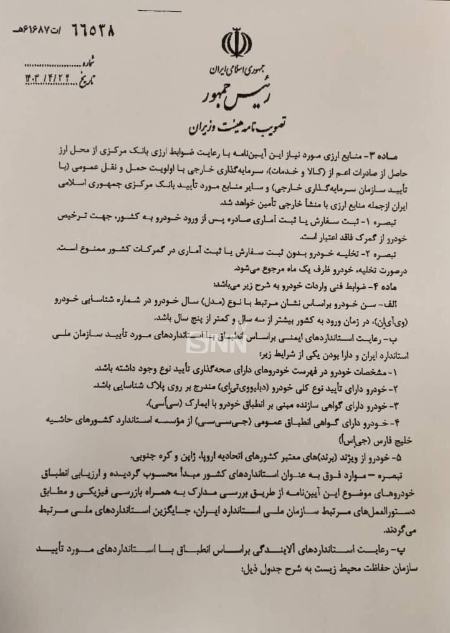 ۶۶۵۳۸ /ت۶۱۶۸۷هـ
شماره
تاریخ ۱۴۰۳/۴/۲۹
جمهوری اسلامی ایران
رئیس جمهور
تصویب نامه هیئت وزیران
ماده ۳- منابع ارزی مورد نیاز این آیین‌نامه با رعایت ضوابط ارزی بانک مرکزی از محل ارز
حاصل از صادرات اعم از (کالا و خدمات)، سرمایه‌گذاری خارجی با اولویت حمل و نقل عمومی (با
تأیید سازمان سرمایه‌گذاری خارجی) و سایر منابع مورد تأیید بانک مرکزی جمهوری اسلامی
ایران ازجمله منابع ارزی با منشأ خارجی تأمین خواهد شد.
تبصره ۱- ثبت سفارش یا ثبت آماری صادره پس از ورود خودرو به کشور، جهت ترخیص
خودرو از گمرک فاقد اعتبار است.
تبصره ۲- تخلیه خودرو بدون ثبت سفارش یا ثبت آماری در گمرکات کشور ممنوع است.
درصورت تخلیه، خودرو ظرف یک ماه مرجوع می‌شود.
ماده ۴- ضوابط فنی واردات خودرو به شرح زیر می‌باشد:
الف- سن خودرو براساس نشان مرتبط با نوع (مدل) سال خودرو در شماره شناسایی خودرو
(وی‌آی‌ان)، در زمان ورود به کشور بیشتر از سه سال و کمتر از پنج سال باشد.
ب- رعایت استانداردهای ایمنی براساس انطباق با استانداردهای مورد تأیید سازمان ملی
استاندارد ایران و دارا بودن یکی از شرایط زیر:
۱- مشخصات خودرو در فهرست خودروهای دارای صحه‌گذاری تأیید نوع وجود داشته باشد.
۲- خودرو دارای تأیید نوع کلی خودرو (دبلیووی‌تی‌ای) مندرج بر روی پلاک شناسایی باشد.
۳- خودرو دارای گواهی سازنده مبنی بر انطباق خودرو با ایمارک (سی‌اُسی).
۴- خودرو دارای گواهی انطباق عمومی (جی‌سی‌سی) از مؤسسه استاندارد کشورهای حاشیه
خلیج فارس (جی‌اس‌اُ)
۵- خودرو از ویژند (برند)های معتبر کشورهای اتحادیه اروپا، ژاپن و کره جنوبی.
تبصره – موارد فوق به عنوان استانداردهای کشور مبدأ محسوب گردیده و ارزیابی انطباق
خودروهای موضوع این آیین‌نامه از طریق بررسی مدارک به همراه بازرسی فیزیکی و مطابق
دستورالعمل‌های مرتبط سازمان ملی استاندارد ایران، جایگزین استانداردهای ملی مرتبط
می‌گردند.
پ- رعایت استانداردهای آلایندگی براساس انطباق با استانداردهای مورد تأیید
سازمان حفاظت محیط زیست به شرح جدول ذیل:
SNN